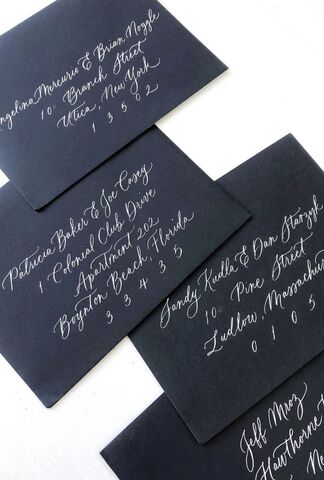 Angelina Mercurio & Brian Noggle
10 Branch Street
Utica, New York
13502
Patricia Baker & Joe Casey
1 Colonial Club Drive
Apartment 202
Boynton Beach, Florida
33435
Sandy Kudla & Dan Starzyk
10 Pine Street
Ludlow, Massachus
0105
Jeff Mroz
Hawthorne
Ne